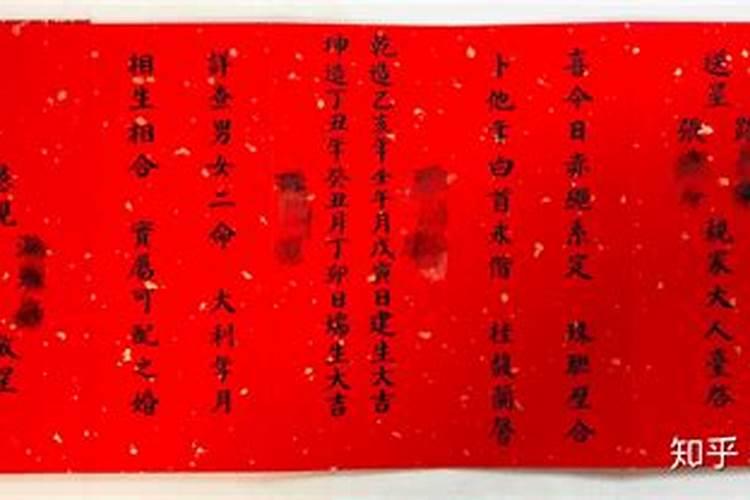 送呈 張 親家大人臺啓
喜今日赤繩系定 珠聯璧合
卜他年白首永偕 桂馥蘭馨
乾造乙亥年壬午月戊寅日建生大吉
坤造丁丑年癸丑月丁卯日生大吉
詳查男女二命 大利年月
相生相合 實屬可配之婚
敬呈
知乎